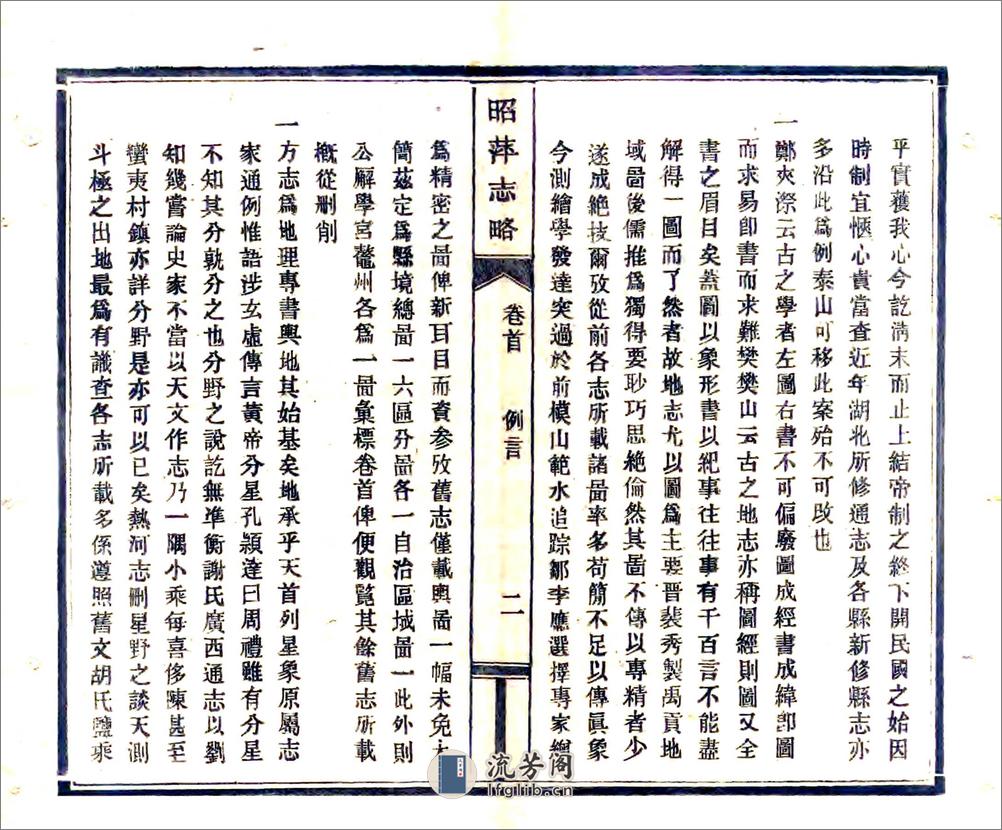 平實獲我心今訖淸末而止上結帝制之終下開民國之始因
時制宜愜心貴當查近年湖北所修通志及各縣新修縣志亦
多沿此爲例泰山可移此案殆不可改也
一鄭夾漈云古之學者左圖右書不可偏廢圖成經書成緯卽圖
而求易卽書而求難樊樊山云古之地志亦稱圖經則圖又全
書之眉目矣蓋圖以象形書以紀事往往事有千百言不能盡
解得一圖而了然者故地志尤以圖爲主要晉裴秀製禹貢地
域啚後儒推爲獨得要眇巧思絕倫然其啚不傳以專精者少
遂成絕技爾攷從前各志所載諸啚率多苟簡不足以傳眞象
今測繪學發達突過於前模山範水追踪鄒李應選擇專家繪
昭萍志略
卷首 例言
二
爲精密之啚俾新耳目而資參攷舊志僅載輿啚一幅未免太
簡茲定爲縣境總啚一六區分啚各一自治區域啚一此外則
公廨學宮鼇州各爲一啚彙標卷首俾便觀覽其餘舊志所載
槪從刪削
一方志爲地理專書輿地其始基矣地承乎天首列星象原屬志
家通例惟語涉玄虛傳言黃帝分星孔潁達曰周禮雖有分星
不知其分孰分之也分野之說訖無準衡謝氏廣西通志以劉
知幾嘗論史家不當以天文作志乃一隅小乘每喜侈陳甚至
蠻夷村鎮亦詳分野是亦可以已矣熱河志刪星野之談天測
斗極之出地最爲有識查各志所載多係遵照舊文胡氏鹽乘
流芳阁
lfglib.cn